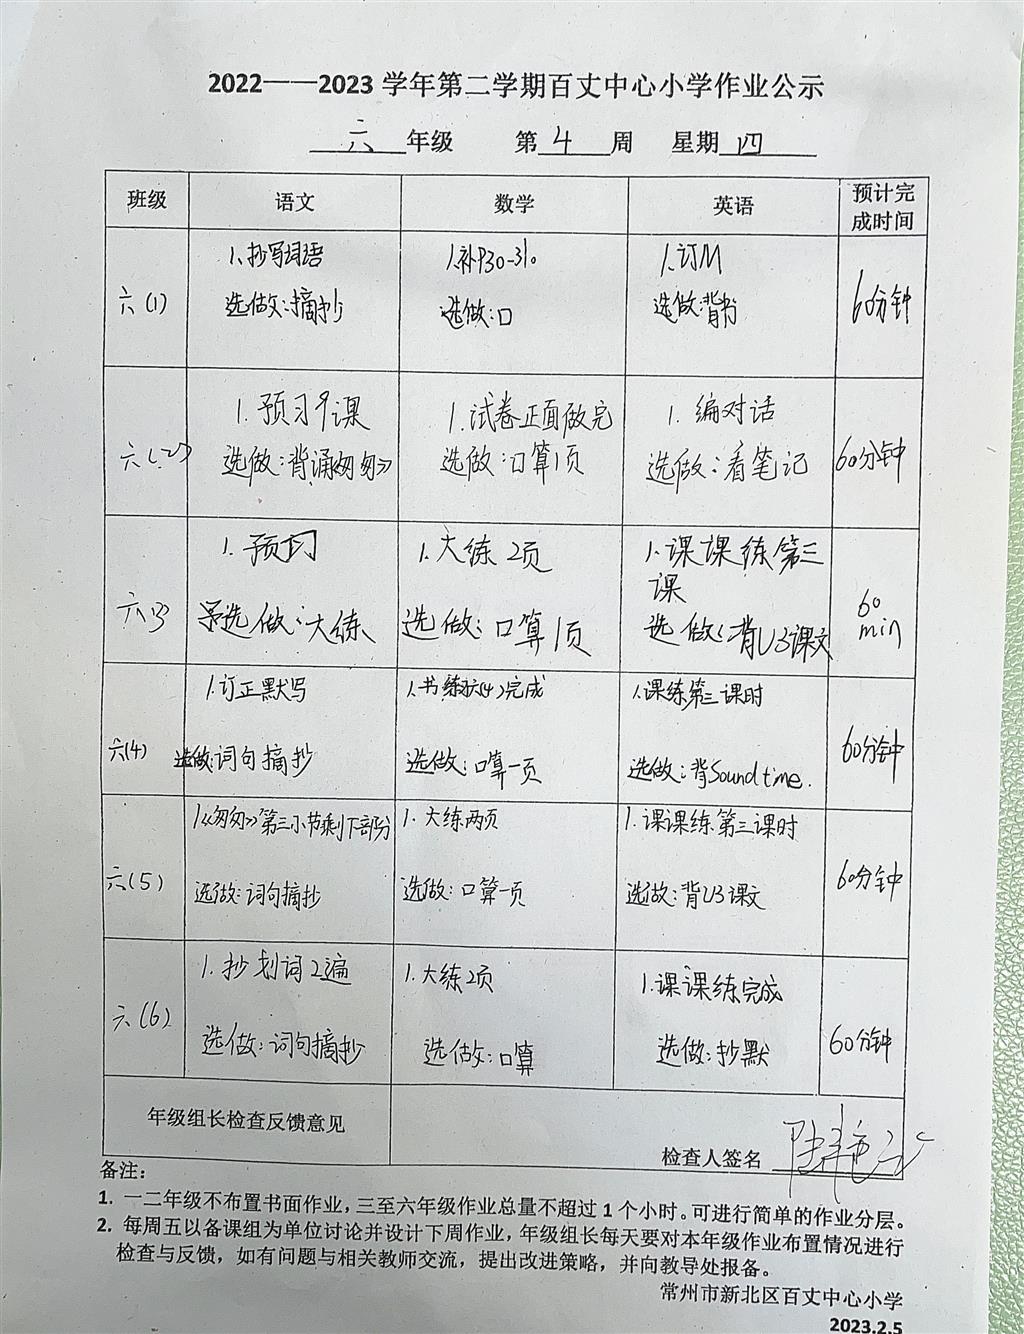 2022——2023 学年第二学期百丈中心小学作业公示
六 年级 第 4 周 星期 四
班级 语文 数学 英语 预计完成时间
六(1)
1.抄写词语
选做:摘抄
1.补P30-31。
选做:口
1.订M
选做:背书
60分钟
六(2)
1.预习9课
选做:背诵《匆匆》
1.试卷正面做完
选做:口算1页
1.编对话
选做:看笔记
60分钟
六(3)
1.预习
选做:大练
1.大练2页
选做:口算1页
1.课课练第三
课
选做:背U3课文
60
min
六(4)
1.订正默写
选做:词句摘抄
1.书练六(4)完成
选做:口算一页
1.课练第三课时
选做:背Sound time.
60分钟
六(5)
1.《匆匆》第三小节剩下部分
选做:词句摘抄
1.大练两页
选做:口算一页
1.课课练第三课时
选做:背U3课文
60分钟
六(6)
1.抄划词2遍
选做:词句摘抄
1.大练2页
选做:口算
1.课课练完成
选做:抄默
60分钟
年级组长检查反馈意见
检查人签名
备注:
1. 一二年级不布置书面作业,三至六年级作业总量不超过 1 个小时。可进行简单的作业分层。
2. 每周五以备课组为单位讨论并设计下周作业,年级组长每天要对本年级作业布置情况进行
检查与反馈,如有问题与相关教师交流,提出改进策略,并向教导处报备。
常州市新北区百丈中心小学
2023.2.5